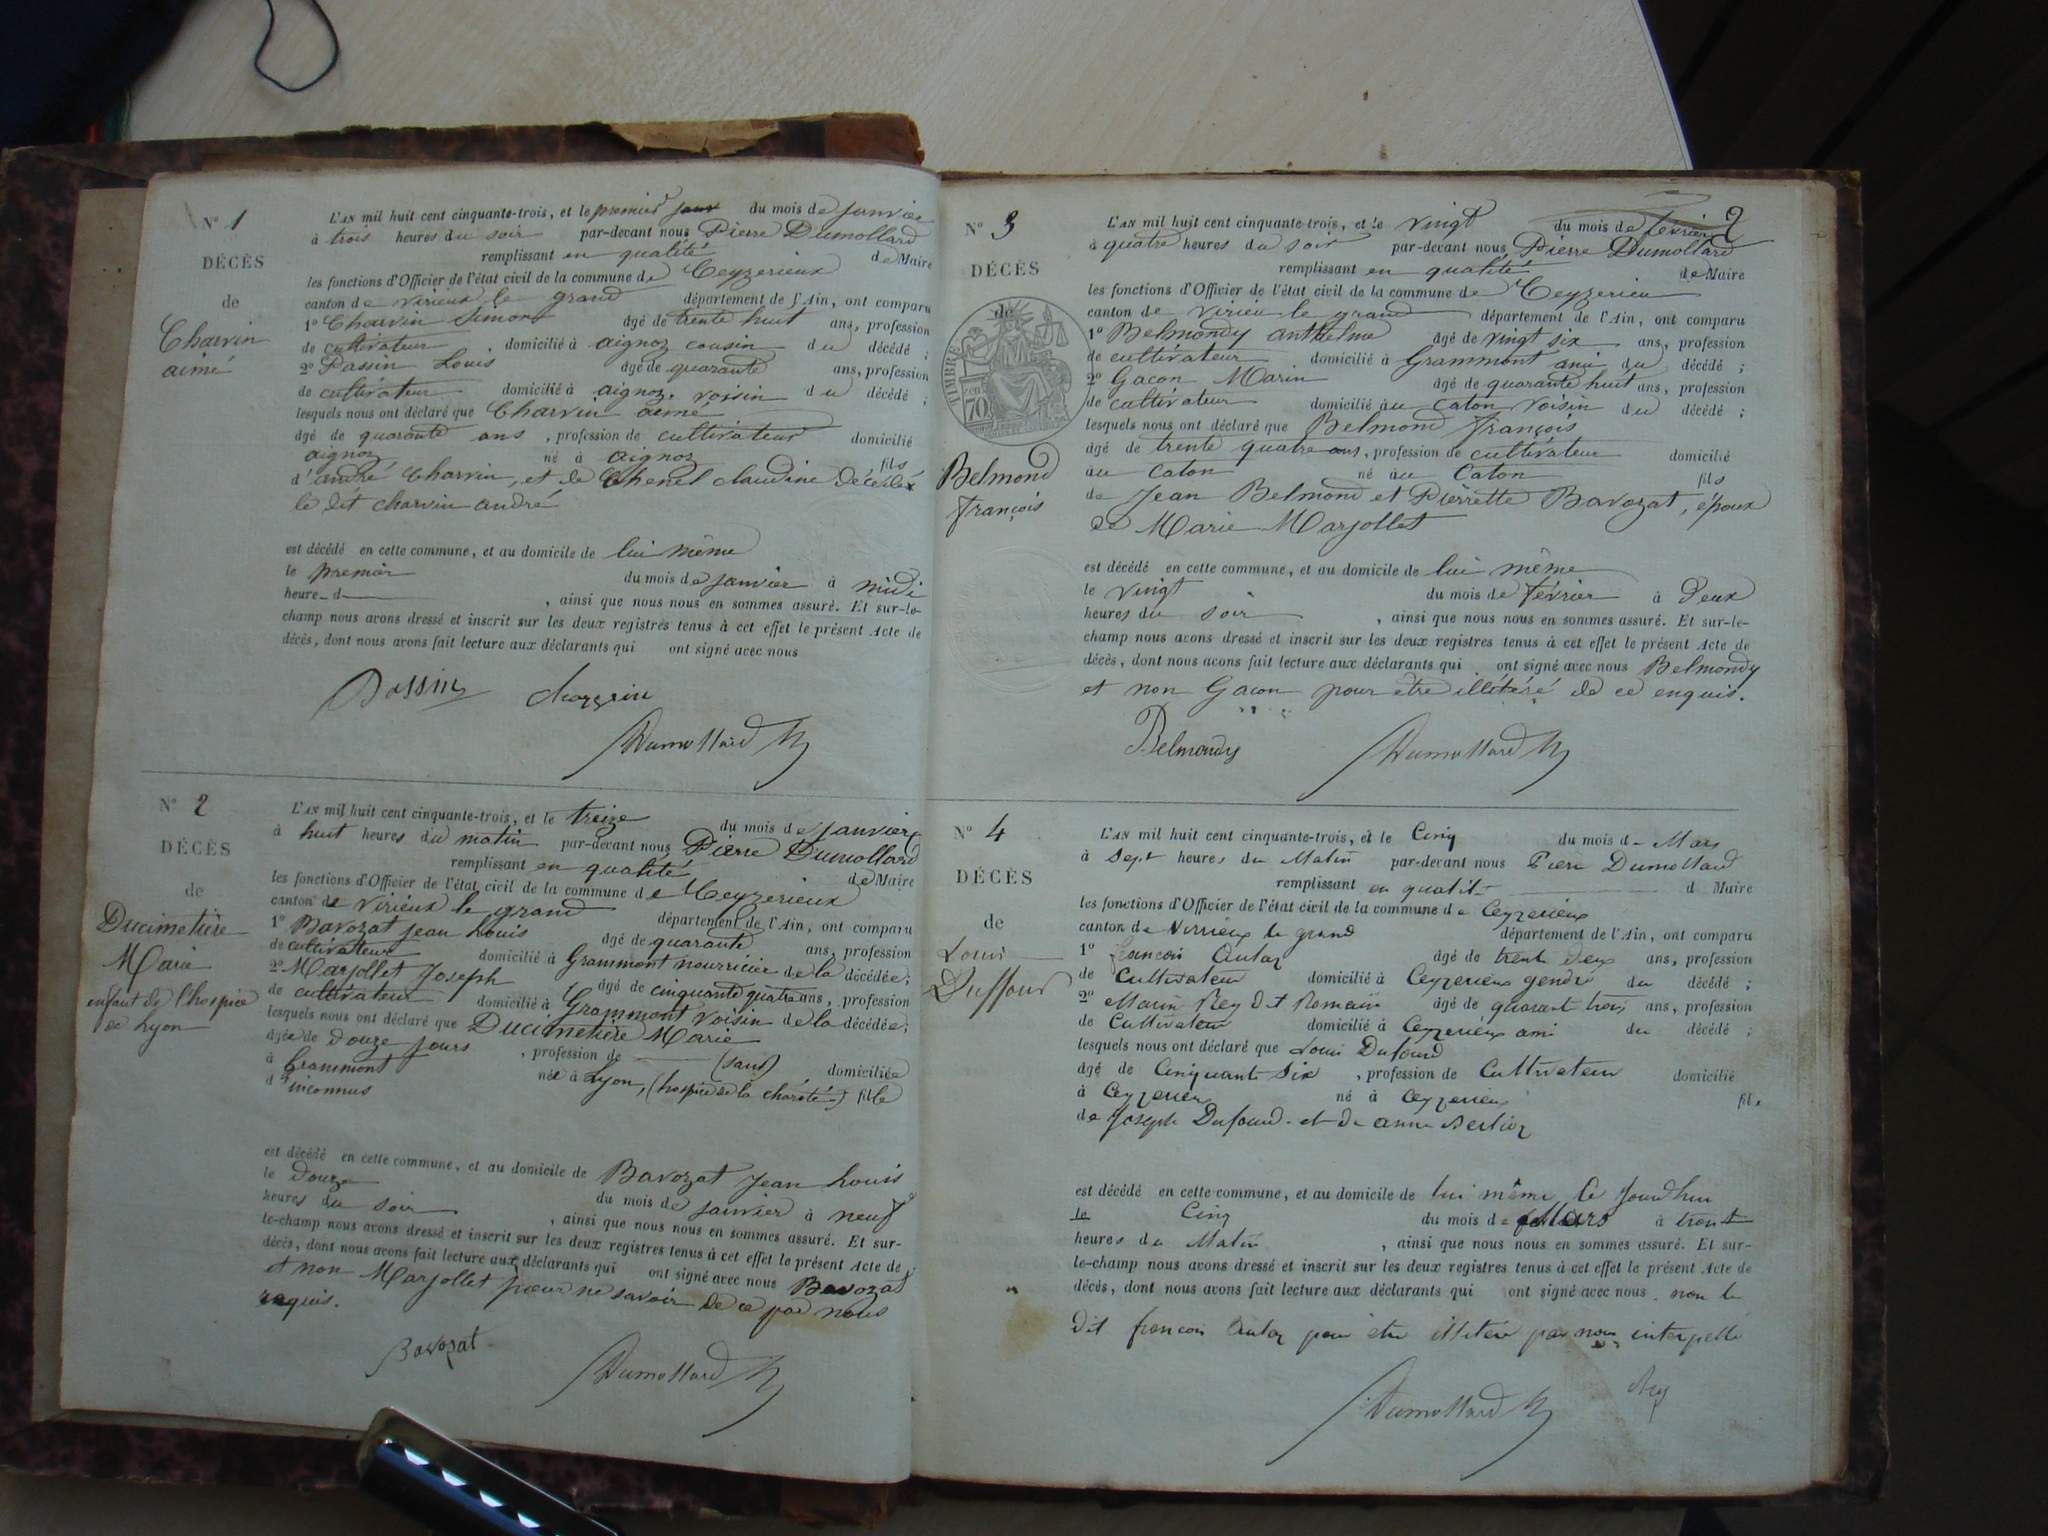 N° 1
DÉCÈS
de
Charvin
aimé
L'AN mil huit cent cinquante-trois, et le premier jour du mois de janvier
à trois heures du soir par-devant nous Pierre Dumollard
remplissant en qualité de Maire
les fonctions d'Officier de l'état civil de la commune de Ceyzerieux
canton de virieux le grand département de l'Ain, ont comparu
1° Charvin Simon âgé de trente huit ans, profession
de cultivateur domicilié à aignoz cousin du décédé ;
2° Passin Louis âgé de quarante ans, profession
de cultivateur domicilié à aignoz. voisin du décédé ;
lesquels nous ont déclaré que Charvin aimé
âgé de quarante ans , profession de cultivateur domicilié
aignoz né à aignoz fils
d'andré Charvin, et de Chenel claudine décédé
le dit charvin andré
est décédé en cette commune, et au domicile de lui même
le premier du mois de janvier à midi
heure d , ainsi que nous nous en sommes assuré. Et sur-le-
champ nous avons dressé et inscrit sur les deux registres tenus à cet effet le présent Acte de
décès, dont nous avons fait lecture aux déclarants qui ont signé avec nous
Dumollard
N° 2
DÉCÈS
de
Ducimetière
Marie
enfant de l'hospice
de Lyon
L'AN mil huit cent cinquante-trois, et le treize du mois de janvier
à huit heures du matin par-devant nous Pierre Dumollard
remplissant en qualité de Maire
les fonctions d'Officier de l'état civil de la commune de Ceyzerieux
canton de virieux le grand département de l'Ain, ont comparu
1° Bavozat jean Louis âgé de quarante ans, profession
de cultivateur domicilié à Grammont nourricier de la décédée ;
2° Marjollet Joseph âgé de cinquante quatre ans, profession
de cultivateur domicilié à Grammont voisin de la décédée ;
lesquels nous ont déclaré que Ducimetière Marie
âgée de douze jours , profession de (sans) domiciliée
à Grammont née à Lyon, (hospice de la charité) fille
d'inconnus
est décédé en cette commune, et au domicile de Bavozat Jean Louis
le douze du mois de janvier à neuf
heures du soir , ainsi que nous nous en sommes assuré. Et sur-
le-champ nous avons dressé et inscrit sur les deux registres tenus à cet effet le présent Acte de
décès, dont nous avons fait lecture aux déclarants qui ont signé avec nous Bavozat
et non Marjollet pour ne savoir de ce par nous
requis.
Bavozat
Dumollard
2
N° 3
DÉCÈS
de
TIMBRE
70
Belmond
François
L'AN mil huit cent cinquante-trois, et le vingt du mois de février
à quatre heures du soir par-devant nous Pierre Dumollard
remplissant en qualité de Maire
les fonctions d'Officier de l'état civil de la commune de Ceyzerieu
canton de virieu le grand département de l'Ain, ont comparu
1° Belmondy anthelme âgé de vingt six ans, profession
de cultivateur domicilié à Grammont ami du décédé ;
2° Gacon Marin âgé de quarante huit ans, profession
de cultivateur domicilié au Caton voisin du décédé ;
lesquels nous ont déclaré que Belmond François
âgé de trente quatre ans, profession de cultivateur domicilié
au Caton né au Caton fils
de Jean Belmond et Pierrette Bavozat, époux
de Marie Marjollet
est décédé en cette commune, et au domicile de lui même
le vingt du mois de février à deux
heures du soir , ainsi que nous nous en sommes assuré. Et sur-le-
champ nous avons dressé et inscrit sur les deux registres tenus à cet effet le présent Acte de
décès, dont nous avons fait lecture aux déclarants qui ont signé avec nous Belmondy
et non Gacon pour être illétéré de ce enquis.
Belmondy
Dumollard
N° 4
DÉCÈS
de
Louis
Duffour
L'AN mil huit cent cinquante-trois, et le Cinq du mois de Mars
à Sept heures du Matin par-devant nous Pierre Dumollard
remplissant en qualité d Maire
les fonctions d'Officier de l'état civil de la commune de Ceyzerieux
canton de Virrieux le grand département de l'Ain, ont comparu
1° françois âgé de trent deux ans, profession
de Cultivateur domicilié à Ceyzerieux gendre du décédé ;
2° Marin Rey dit Romain âgé de quarant trois ans, profession
de Cultivateur domicilié à Ceyzerieux ami du décédé ;
lesquels nous ont déclaré que Louis Dufourd
âgé de Cinquante Six , profession de Cultivateur domicilié
à Ceyzerieu né à Ceyzerieux fils
de Joseph Dufourd et de anne Berlioz
est décédé en cette commune, et au domicile de lui même Ce Jourdhui
le Cinq du mois de Mars à
heures du Matin , ainsi que nous nous en sommes assuré. Et sur-
le-champ nous avons dressé et inscrit sur les deux registres tenus à cet effet le présent Acte de
décès, dont nous avons fait lecture aux déclarants qui ont signé avec nous non le
dit francois pour etre illitéré par nous interpelle
Dumollard
Rey